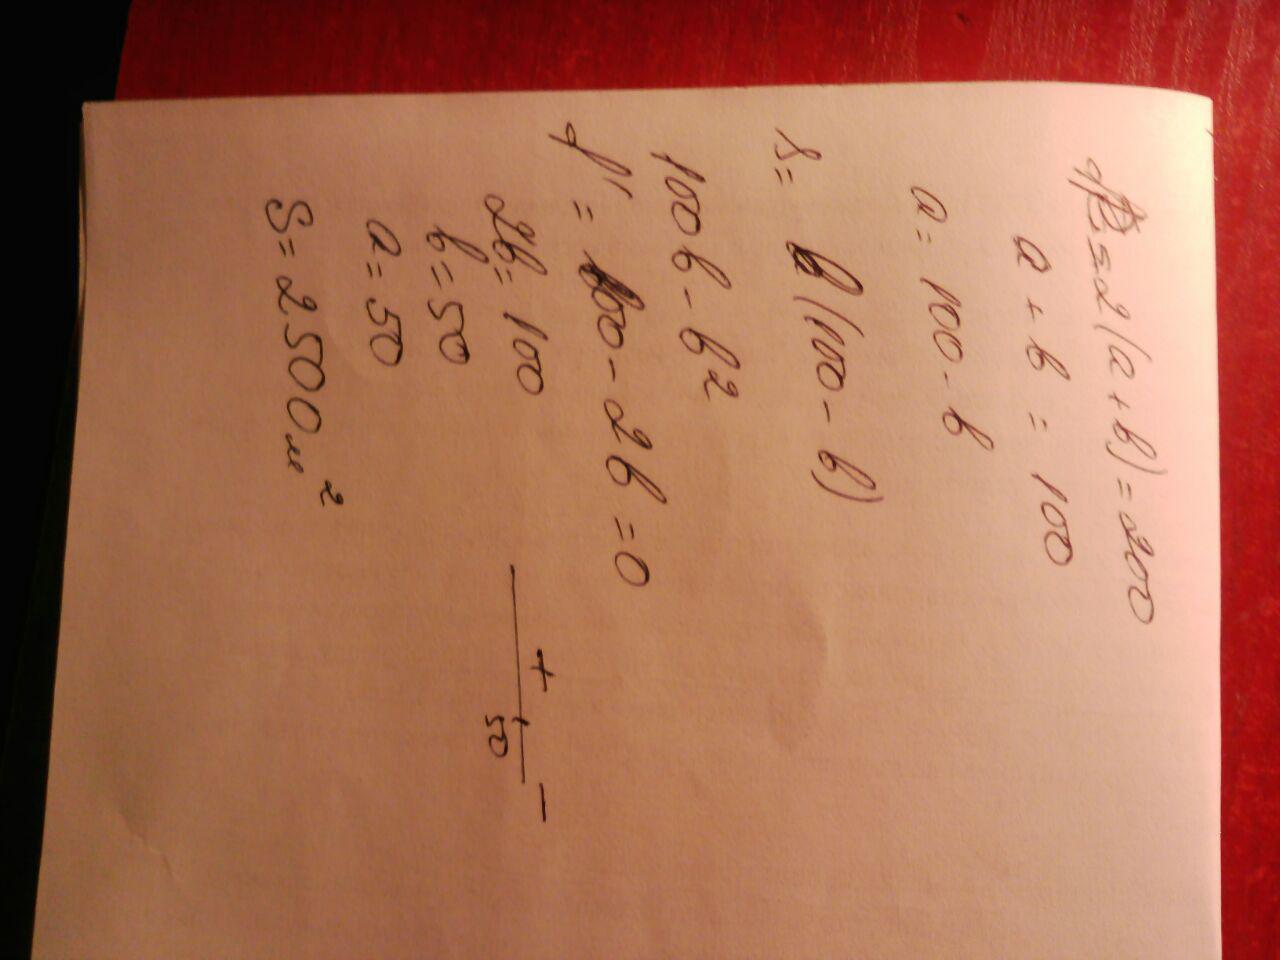 = 2(a+b) = 200
a + b = 100
a = 100 - b
S = b(100 - b)
100b - b²
f' = 100 - 2b = 0
2b = 100
b = 50
a = 50
S = 2500 м²
+ -
50